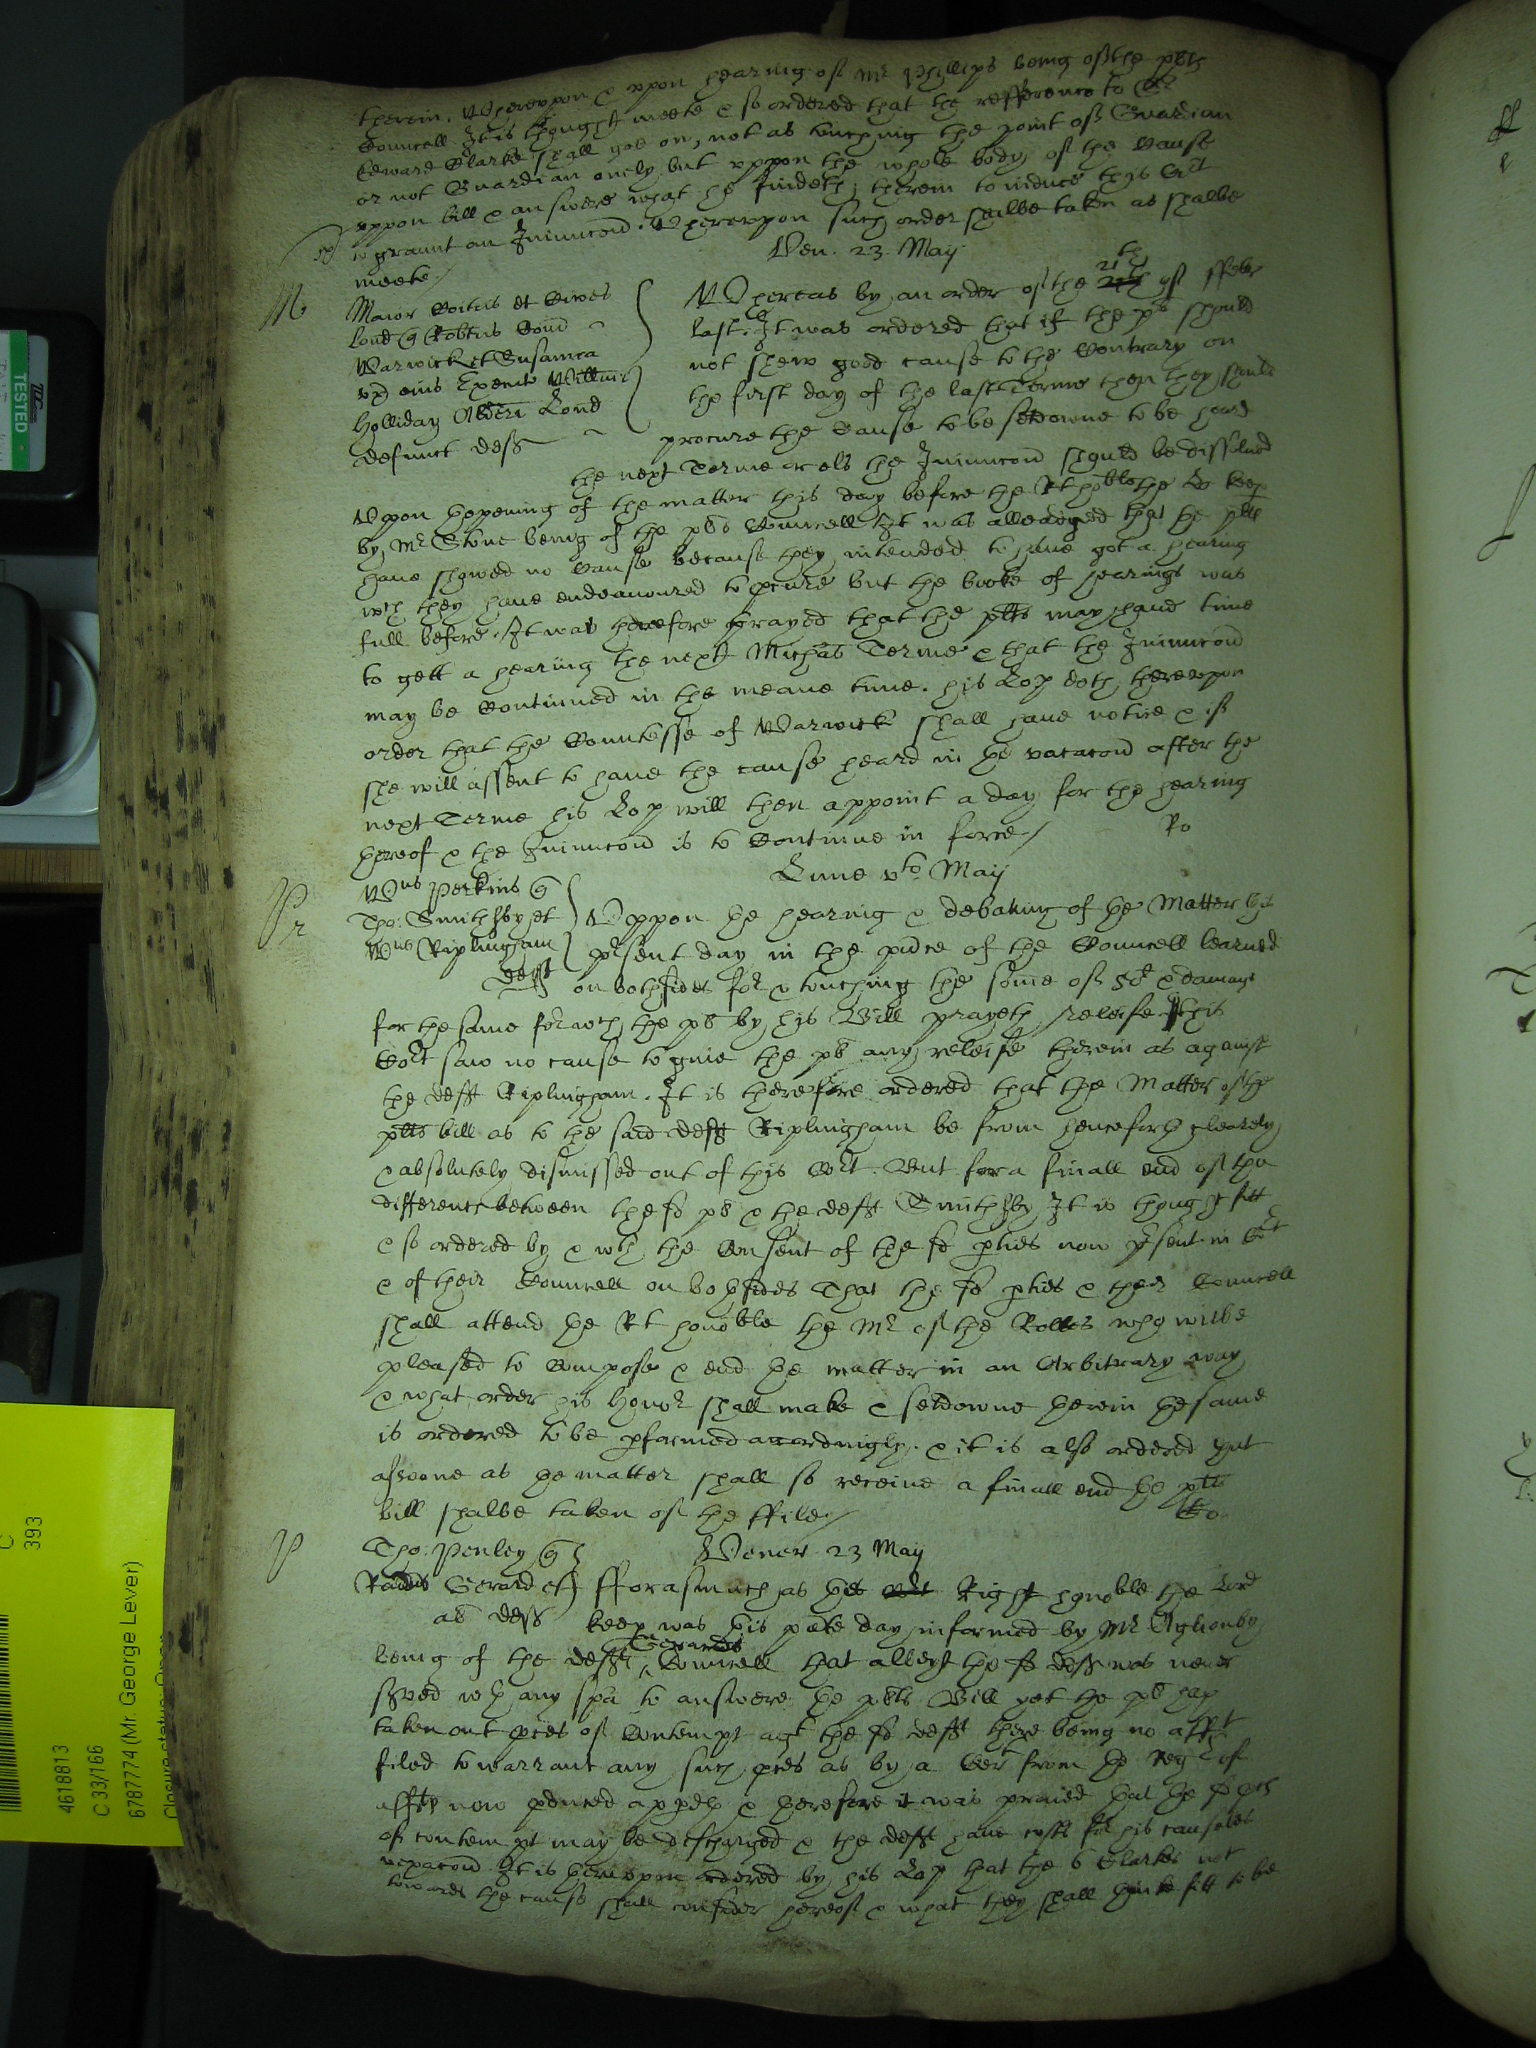 therein. Wherevpon & vpon hearing of Mr Phyllips being of the plts
Councell It is thought meete & so ordered that the refference to Sr
Edward Clarke shall goe on, not as touching the point of Guardian
or not Guardian onely but vppon the whole body of the Cause
vppon bill & answere what he findeth therein to induce this Cort
to graunt an Iniunccon. Wherevpon such order shalbe taken as shalbe
meete /
Ven. 23 May
M
Maior Coitas et Cives
Lond Robtus Com
Warwick et Susanna
vx eius Execut Willmi
Holliday Aldri Lond
defunct deff
Whereas by an order of the 21th of ffebr
last. It was ordered that if the pl should
not shew good cause to the Contrary on
the first day of the last Terme then they should
procure the Cause to be setdowne to be heard
the next Terme or els the Iniunccon should be dissolued
Vpon hopening of the matter this day before the Rt hoble the Lo Keep
by Mr Stone being of the pls Councell It was alleadged that he pltf
haue shewed no Cause because they intended to haue got a hearing
wch they haue endeauoured to pcure but the booke of hearings was
full before. It was therefore prayed that the plts may haue time
to gett a hearing the next Michas Terme & that the Iniunccon
may be Continued in the meane time. his Lop doth therevpon
order that the Countesse of Warwick shall haue notice & if
she will assent to haue the cause heard in the vacacon after the
next Terme his Lop will then appoint a day for the hearing
thereof & the Iniunccon is to Continue in force /
Ro
Lune vto May
Pr
Wms Perkins
Tho: Smithsby et
Wms Riplingham
deff
Vppon the hearing & debating of the Matter this
pesent day in the pnce of the Councell learned
on bothsides for & touching the some of 50l & damage
for the same for wch the pl by his Bill prayeth releife this
Cort saw no cause to giue the pl any releife therein as against
the deft Riplingham. It is therefore ordered that the Matter of the
plts bill as to the said deft Riplingham be from henceforth clearely
& absolutely dismissed out of this Cort. But for a finall end of the
difference between the sd pl & the deft Smithsby It is thought fitt
& so ordered by & wth the Consent of the sd pties now psent in Cort
& of their Councell on bothsides That the sd pties & their Councell
shall attend the Rt honoble the Mr of the Rolles who wilbe
pleased to Compose & end the matter in an Arbitrary way
& what order his honor shall make & setdowne therein the same
is ordered to be pformed accordingly. & it is also ordered that
assoone as the matter shall so receiue a finall end the plts
bill shalbe taken of the ffile /
P
Tho: Penley
Gerard et
al deff
Vener 23 May
fforasmuch as the Right honoble the Lord
keep was this pnte day informed by Mr Aglionby
being of the deft Gerards Councell that albeyt the sd deft was never
serued wth any spa to answere the plts Bill yet the pl hath
taken out pces of Contempt agt the sd deft there being no afft
filed to warrant any such pces as by a Cert from the Regr of
affts now pduced appeth & therefore it was praied that the sd pces
of contempt may be discharged & the deft haue costs for his causeles
vexacon It is therevpon ordered by his Lop that the 6 Clarkes not
towards the cause shall consider thereof & what they shall thinke fitt to be
TESTED
C
393
4618813
C 33/166
6787774 (Mr. George Lever)
Closure status: Open